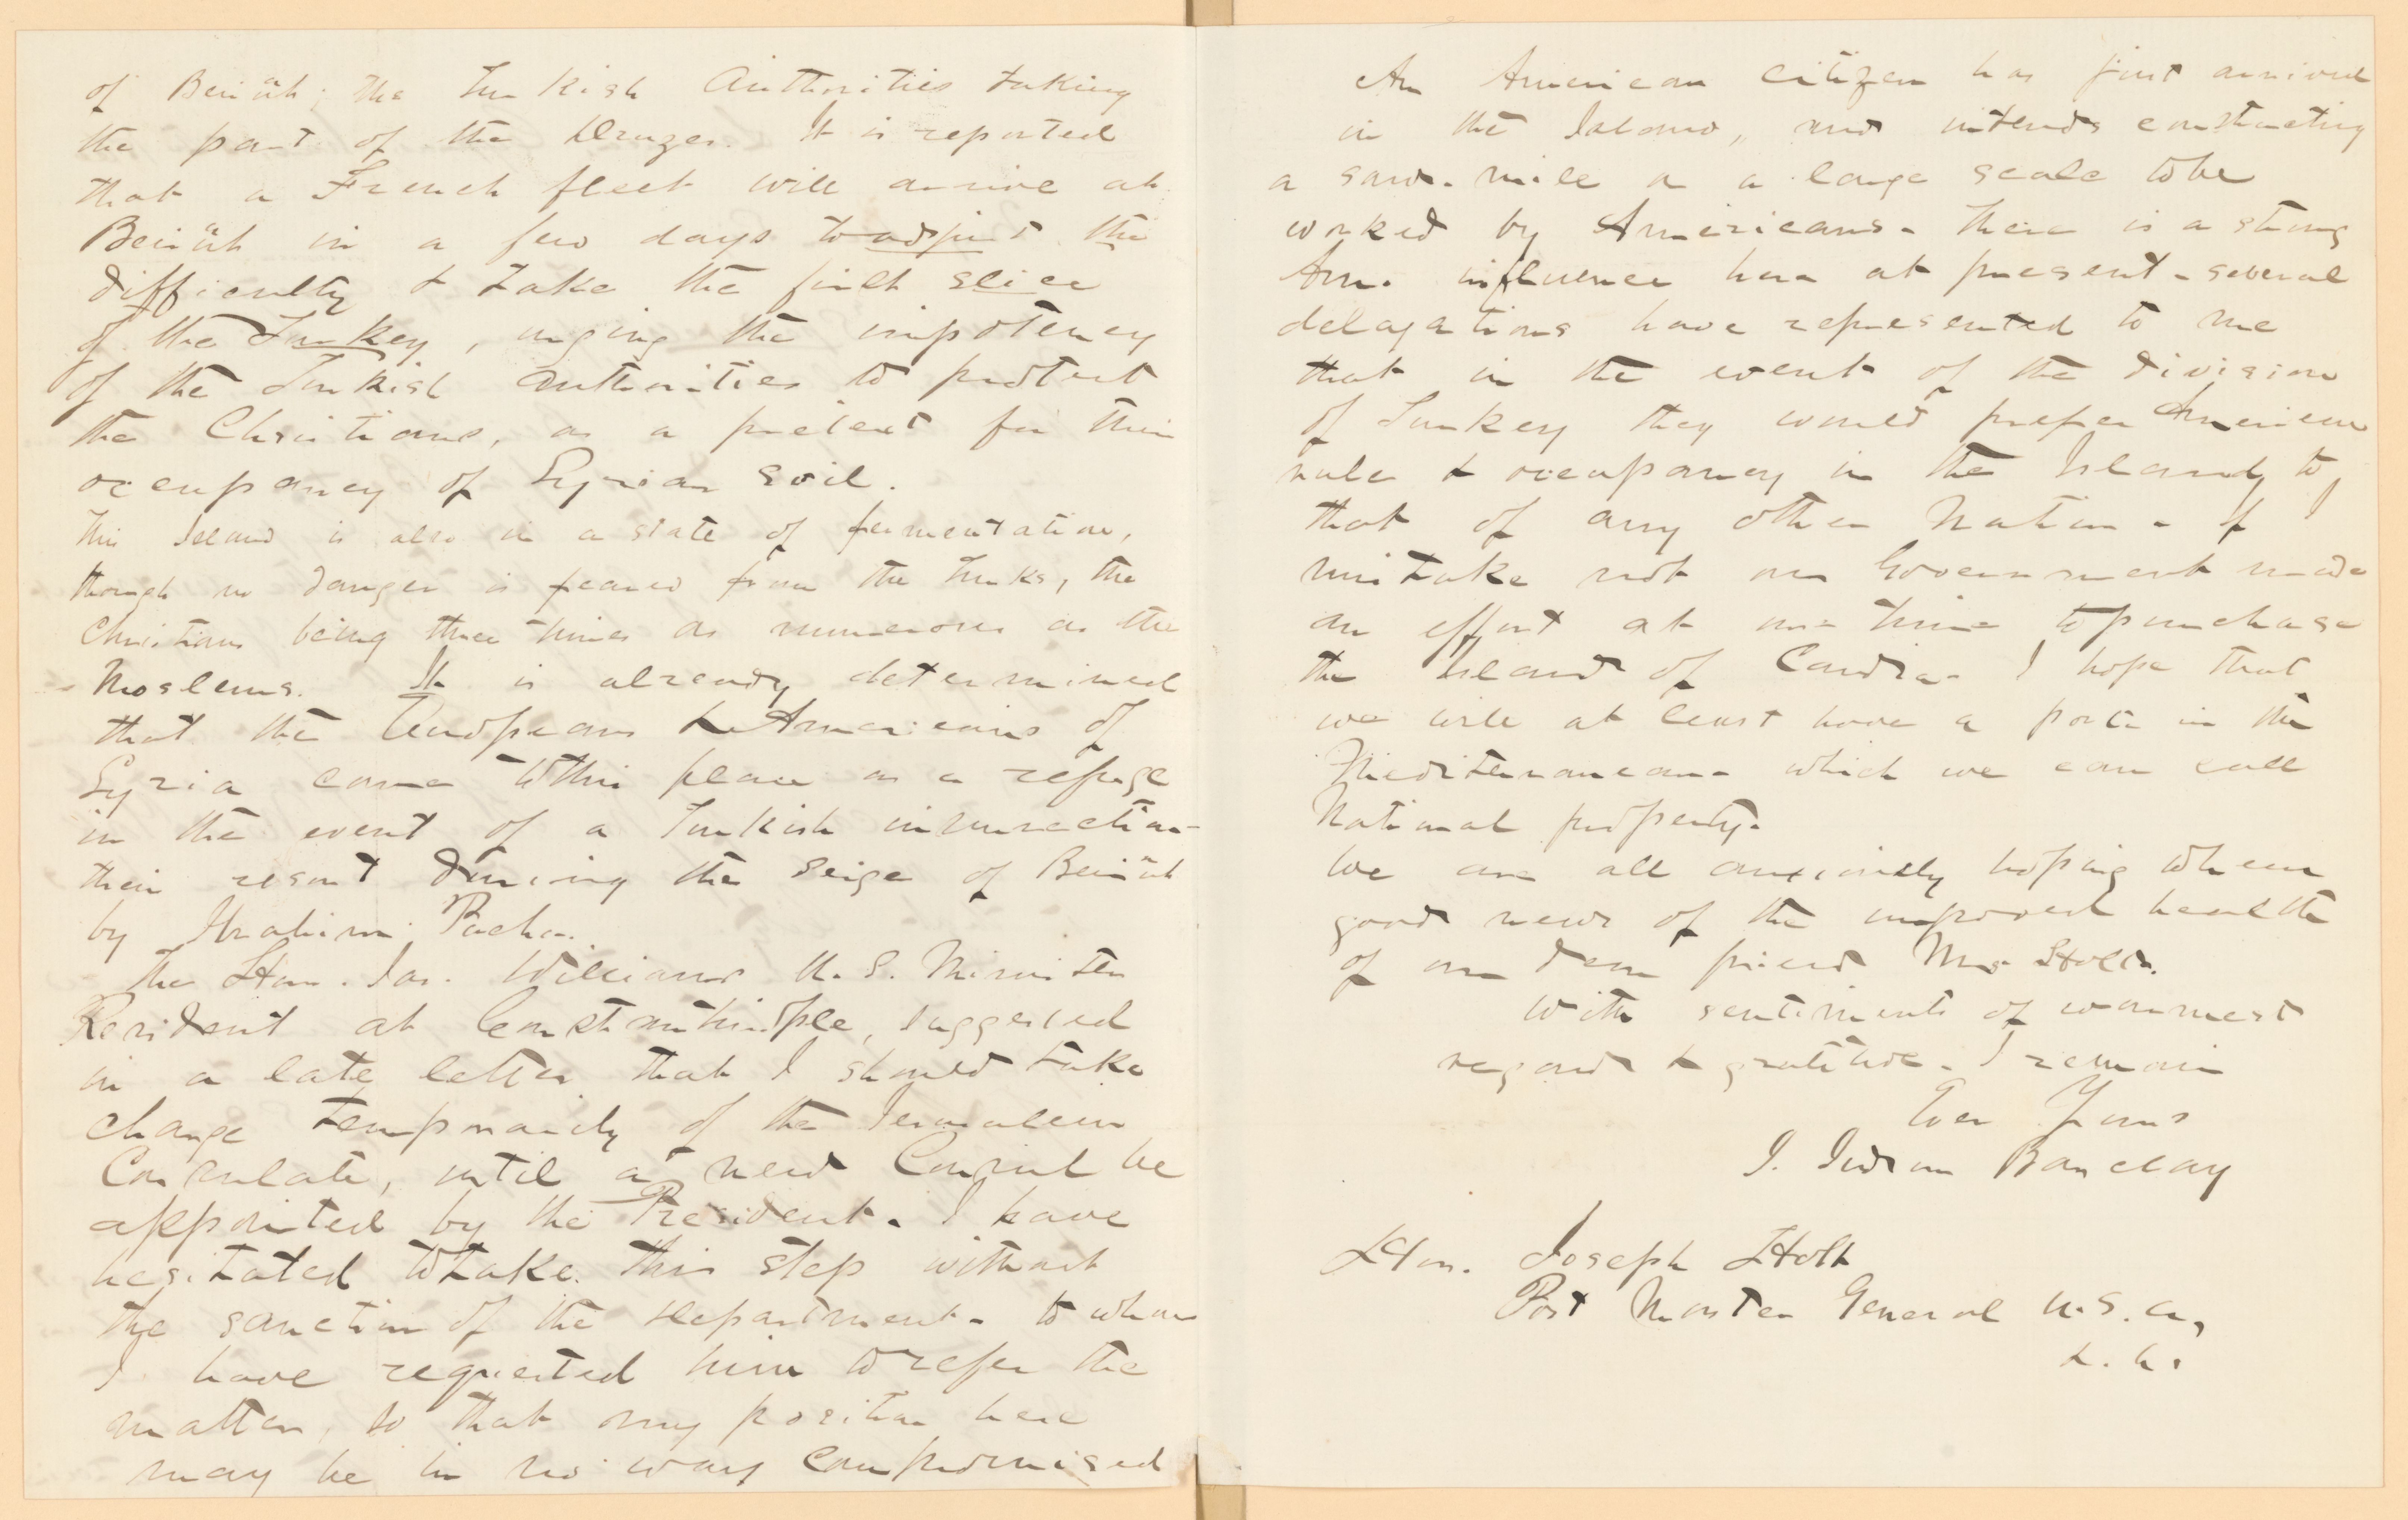 of Beirût; the Turkish Authorities taking
the part of the Druzes. It is reported
that a French fleet will arrive at
Beirût in a few days to adjust the
difficulty & take the first slice
of the Turkey, urging the impotency
of the Turkish Authorities to protect
the Christians, as a pretext for their
occupancy of Syrian soil.
This Island is also in a state of fermentation,
though no danger is feared from the Turks, the
Christians being three times as numerous as the
Moslems. It is already determined
that the Europeans & Americans of
Syria come to this place as a refuge
in the event of a Turkish insurrection-
their resort during the seige of Beirût
by Ibrahim Pacha.
The Hon. Jas. Williams U. S. Minister
Resident at Constantinople, suggested
in a late letter that I should take
charge temporarily of the Jerusalem
Consulate, until a new Consul be
appointed by the President. I have
hesitated to take this step without
the sanction of the Department - to whom
I have requested him to refer the
matter, so that my position here
may be in no way compromised
An American citizen has just arrived
in the Island, and intends constructing
a saw-mill on a large scale to be
worked by Americans - There is a strong
Am. influence here at present - several
delagations have represented to me
that in the event of the division
of Turkey they would prefer American
rule & occupancy in the Island, to
that of any other Nation - If I
mistake not our Government made
an effort at one time to purchase
the Island of Candia - I hope that
we will at least have a port in the
Mediterranean - which we can call
National property.
We are all anxiously hoping to hear
good news of the improved health
of our dear friend Mrs. Holt.
With sentiments of warmest
regard & gratitude - I remain
Ever Yours
J. Judson Barclay
Hon. Joseph Holt
Post Master General U.S.A,
&. &.